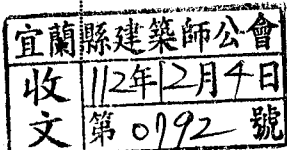 宜蘭縣建築師公會
收文
112年12月4日
第0792號